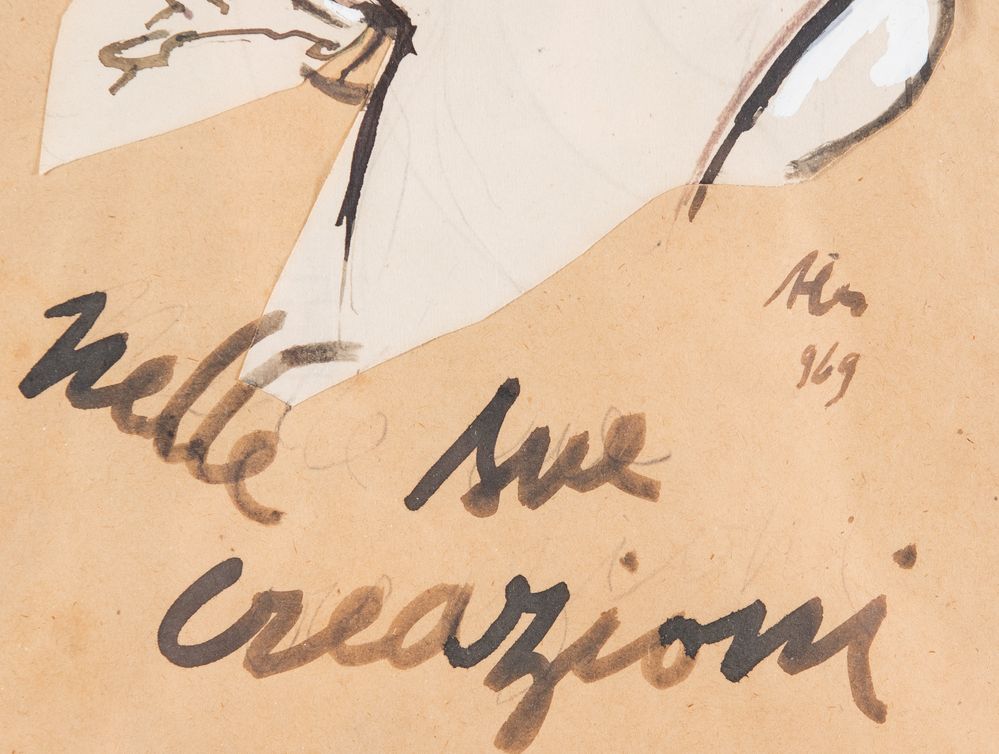 nelle sue
creazioni
969